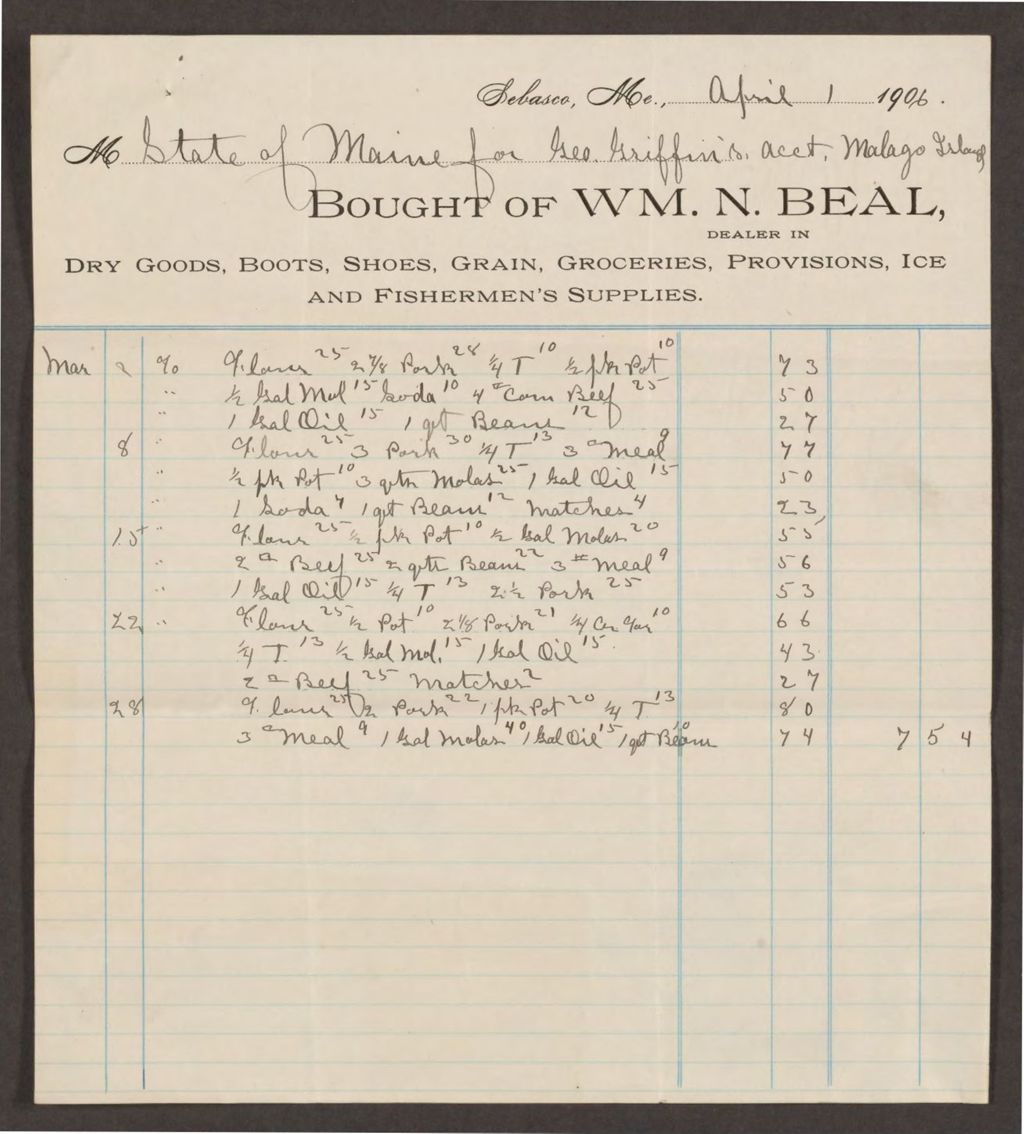 Sebasco, Me., April 1 1906.
M State of Maine for Geo. Griffin's. acct, Malago Island
BOUGHT OF WM. N. BEAL,
DEALER IN
DRY GOODS, BOOTS, SHOES, GRAIN, GROCERIES, PROVISIONS, ICE
AND FISHERMEN'S SUPPLIES.
Mar 2 % Flour 25 2 7/8 Pork 28 1/4 T 10 1/2 pk Pot 10 73
" 1/2 Gal Mol 15 Soda 10 4 # Corn Beef 25 50
" 1 Gal Oil 15 1 qt Beans 12 27
8 " Flour 25 3 Pork 30 1/4 T 13 3 # Meal 9 77
" 1/2 pk Pot 10 3 qts Molas 25 1 Gal Oil 15 50
" 1 Soda 7 1 qt Beans 12 Matches 4 23
15 " Flour 25 1/2 pk Pot 10 1/2 Gal Molas 20 55
" 2 # Beef 25 2 qts Beans 22 3 # Meal 9 56
" 1 Gal Oil 15 1/4 T 13 2 1/2 Pork 25 53
22 " Flour 25 1/2 Pot 10 2 1/8 Pork 21 1/4 10 66
1/4 T. 13 1/2 Gal Mol. 15 1 Gal Oil 15 43
2 # Beef 25 Matches 2 27
28 Flour 25 2 Pork 22 1 pk Pot 20 1/4 T 13 80
3 # Meal 9 1 Gal Molas 40 1 Gal Oil 15 1 qt Beans 10 74 7 54